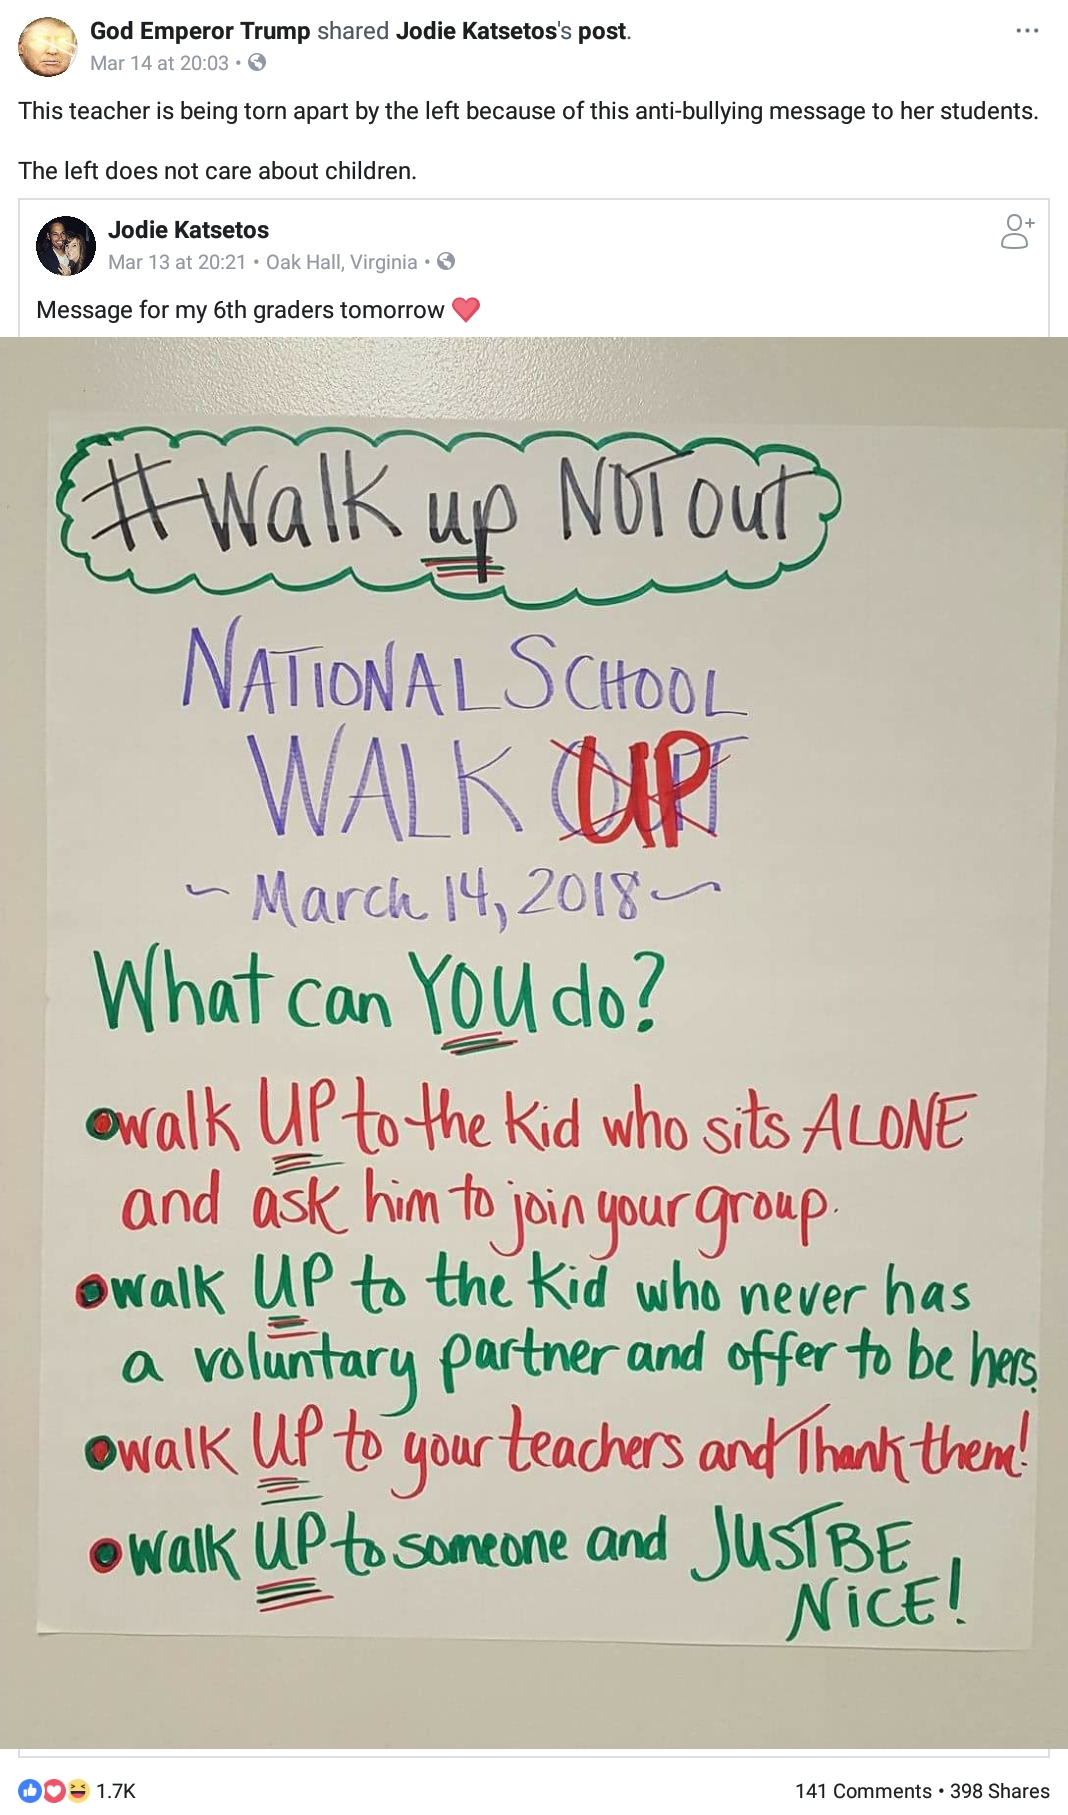 God Emperor Trump shared Jodie Katsetos's post.
Mar 14 at 20:03 •
This teacher is being torn apart by the left because of this anti-bullying message to her students.
The left does not care about children.
Jodie Katsetos
Mar 13 at 20:21 • Oak Hall, Virginia •
Message for my 6th graders tomorrow ❤
#Walk up NOT out
NATIONAL SCHOOL
WALK OUT UP
~ March 14, 2018 ~
What can YOU do?
• walk UP to the kid who sits ALONE
and ask him to join your group.
• walk UP to the kid who never has
a voluntary partner and offer to be hers.
• walk UP to your teachers and Thank them!
• walk UP to someone and JUST BE
NiCE!
1.7K
141 Comments • 398 Shares